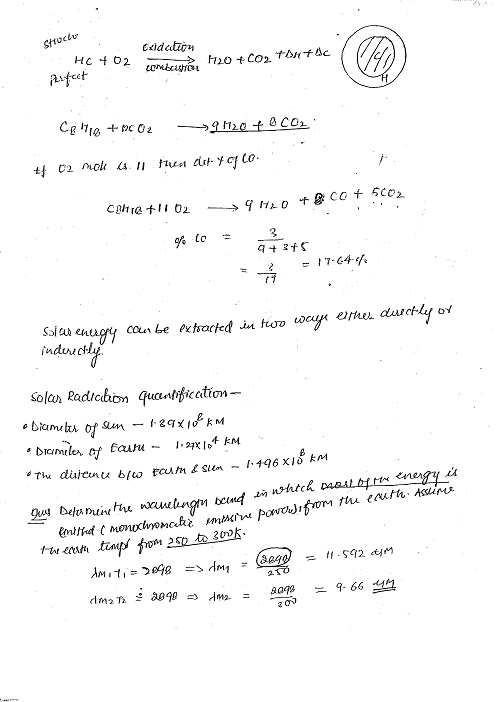 Stoichio
HC + O2 oxidation → combustion H2O + CO2 + ΔH + ΔC
Perfect
C H
C8H18 + xO2 → 9 H2O + 8 CO2
if O2 mole is 11 then det. % of CO.
C8H18 + 11 O2 → 9 H2O + 3 CO + 5CO2
% CO = 3 / 9 + 3 + 5
= 3 / 17 = 17.64 %
Solar energy can be extracted in two ways either directly or
indirectly.
Solar Radiation Quantification –
• Diameter of sun – 1.39 × 10^6 KM
• Diameter of Earth – 1.27 × 10^4 KM
• The distance b/w Earth & sun – 1.496 × 10^8 KM
Que) Determine the wavelength band in which most of the energy is
emitted (monochromatic emissive power) from the earth. Assume
the earth temp from 250 to 300K.
λm1T1 = 2898 => λm1 = 2898 / 250 = 11.592 μM
λm2T2 = 2898 => λm2 = 2898 / 300 = 9.66 μM